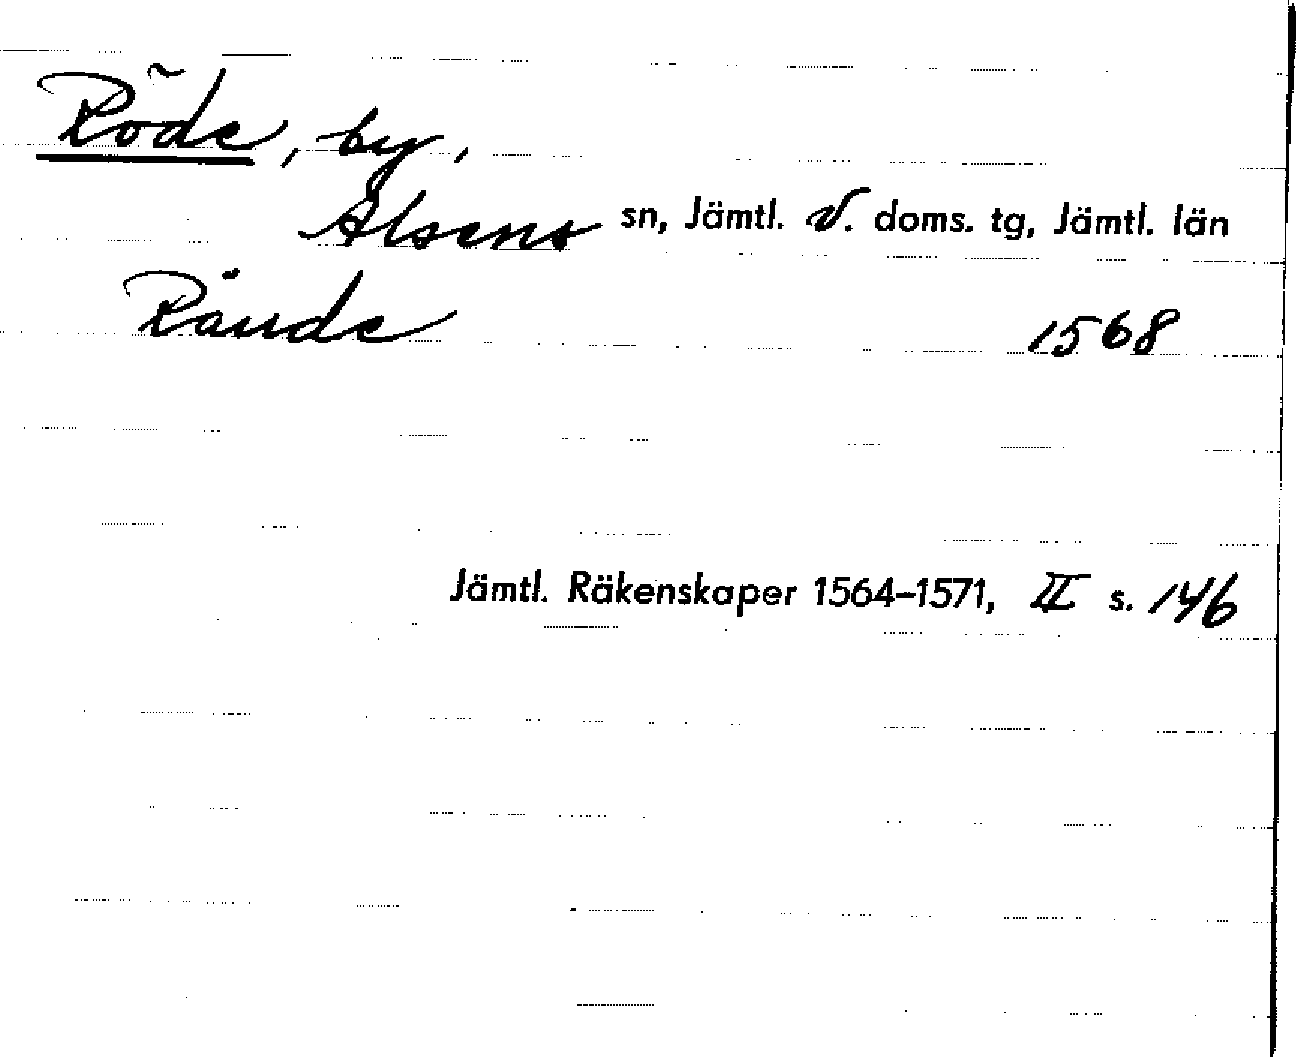 Röde, by,
Alsens sn, Jämtl. v. doms. tg, Jämtl. län
Råude 1568
Jämtl. Räkenskaper 1564–1571, II s. 146